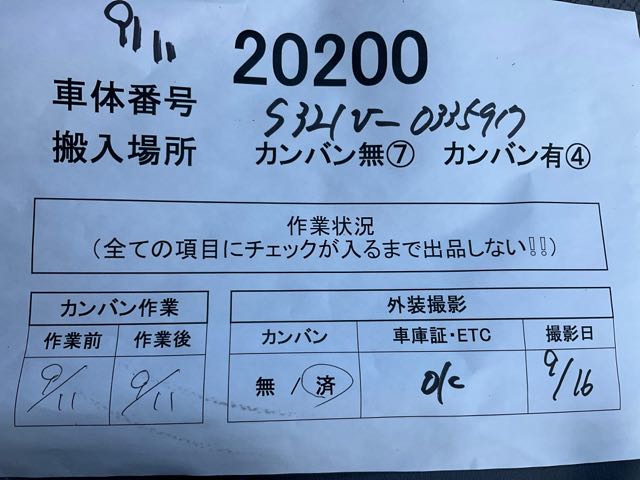 9/11
20200
車体番号 S321V-0335917
搬入場所 カンバン無⑦ カンバン有④
作業状況
(全ての項目にチェックが入るまで出品しない!!)
カンバン作業 外装撮影
作業前 作業後 カンバン 車庫証・ETC 撮影日
9/11 9/11 無 / 済 O/C 9/16